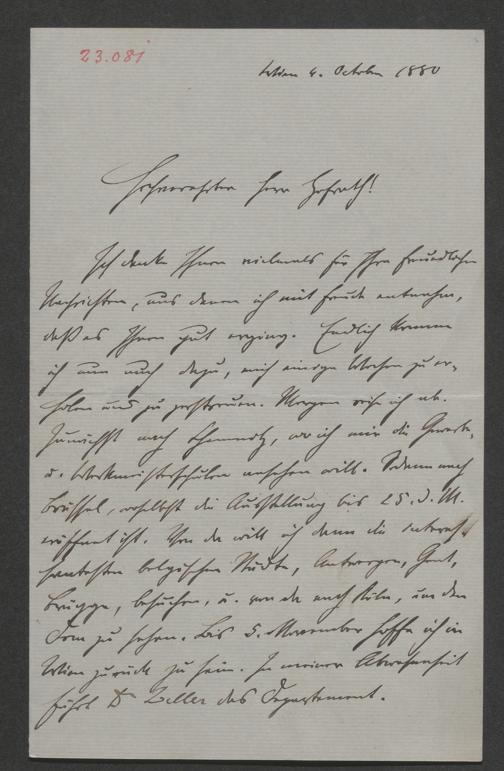 23.081
Wien 4. October 1880
Hochverehrter Herr Hofrath!
Ich danke Ihnen vielmals für Ihre freundlichen
Nachrichten, aus denen ich mit Freude entnehme,
daß es Ihnen gut erging. Endlich komme
ich nun auch dazu, mich einige Wochen zu er-
holen und zu zerstreuen. Morgen reise ich ab.
Zunächst nach Chemnitz, wo ich mir die Gewerbe-
u. Werkmeisterschulen ansehen will. Sodann nach
Brüssel, woselbst die Ausstellung bis 25. d. M.
eröffnet ist. Von da will ich dann die interes-
santesten belgischen Städte, Antwerpen, Gent,
Brügge, besuchen, u. von da nach Köln, um den
Dom zu sehen. Bis 5. November hoffe ich in
Wien zurück zu sein. In meiner Abwesenheit
führt Dr Zeller das Departement.